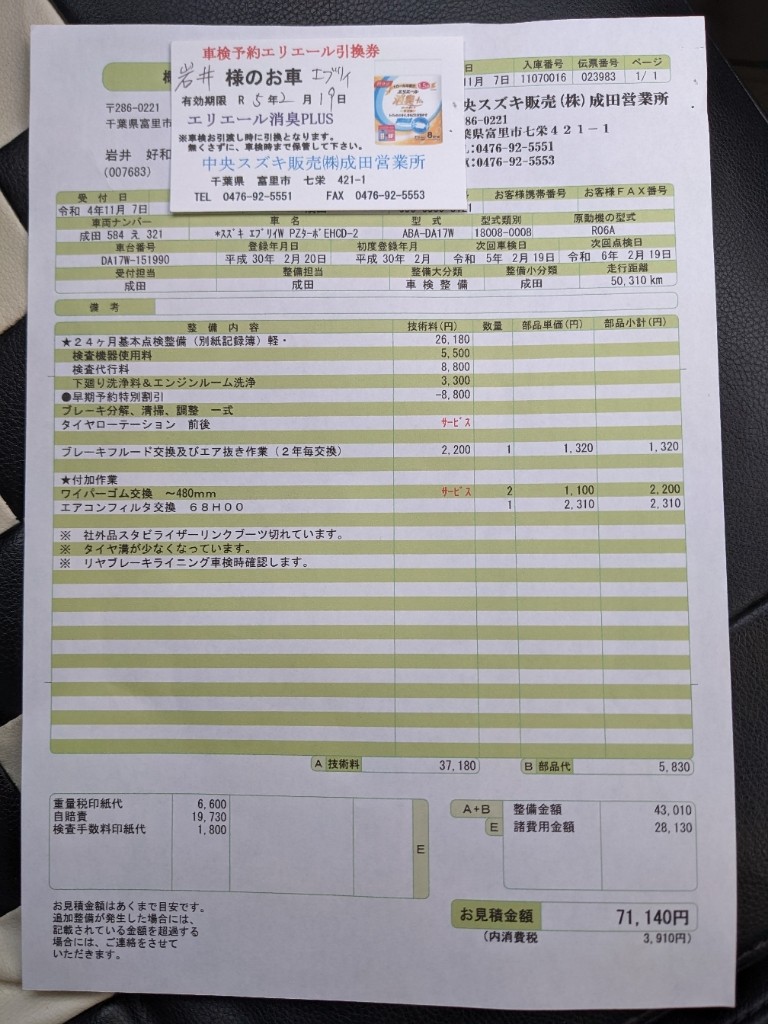 車検予約エリエール引換券
岩井 様のお車 エブリイ
有効期限 R 5年2月19日
エリエール消臭PLUS
※車検お引渡し時に引換となります。
無くさずに、車検時まで保管して下さい。
中央スズキ販売㈱成田営業所
千葉県 富里市 七栄 421-1
TEL 0476-92-5551 FAX 0476-92-5553
入庫番号 伝票番号 ページ
11月 7日 11070016 023983 1/ 1
〒286-0221
千葉県富里市
岩井 好和
(007683)
央スズキ販売(株)成田営業所
86-0221
葉県富里市七栄421-1
:0476-92-5551
:0476-92-5553
受付日 お客様携帯番号 お客様FAX番号
令和 4年11月 7日
車両ナンバー 車名 型式 型式類別 原動機の型式
成田 584 え 321 *スズキ エブリイW PZターボ EHCD-2 ABA-DA17W 18008-0008 R06A
車台番号 登録年月日 初度登録年月 次回車検日 次回点検日
DA17W-151990 平成 30年 2月20日 平成 30年 2月 令和 5年 2月19日 令和 6年 2月19日
受付担当 整備担当 整備大分類 整備小分類 走行距離
成田 成田 車検整備 成田 50,310 km
備考
整備内容 技術料(円) 数量 部品単価(円) 部品小計(円)
★24ヶ月基本点検整備(別紙記録簿)軽・ 26,180
検査機器使用料 5,500
検査代行料 8,800
下廻り洗浄料&エンジンルーム洗浄 3,300
●早期予約特別割引 -8,800
ブレーキ分解、清掃、調整 一式
タイヤローテーション 前後 サービス
ブレーキフルード交換及びエア抜き作業(2年毎交換) 2,200 1 1,320 1,320
★付加作業
ワイパーゴム交換 ~480mm サービス 2 1,100 2,200
エアコンフィルタ交換 68H00 1 2,310 2,310
※ 社外品スタビライザーリンクブーツ切れています。
※ タイヤ溝が少なくなっています。
※ リヤブレーキライニング車検時確認します。
A 技術料 37,180 B 部品代 5,830
重量税印紙代 6,600
自賠責 19,730
検査手数料印紙代 1,800
E
A+B 整備金額 43,010
E 諸費用金額 28,130
お見積金額はあくまで目安です。
追加整備が発生した場合には、
記載されている金額を超過する
場合には、ご連絡をさせて
いただきます。
お見積金額 71,140円
(内消費税 3,910円)